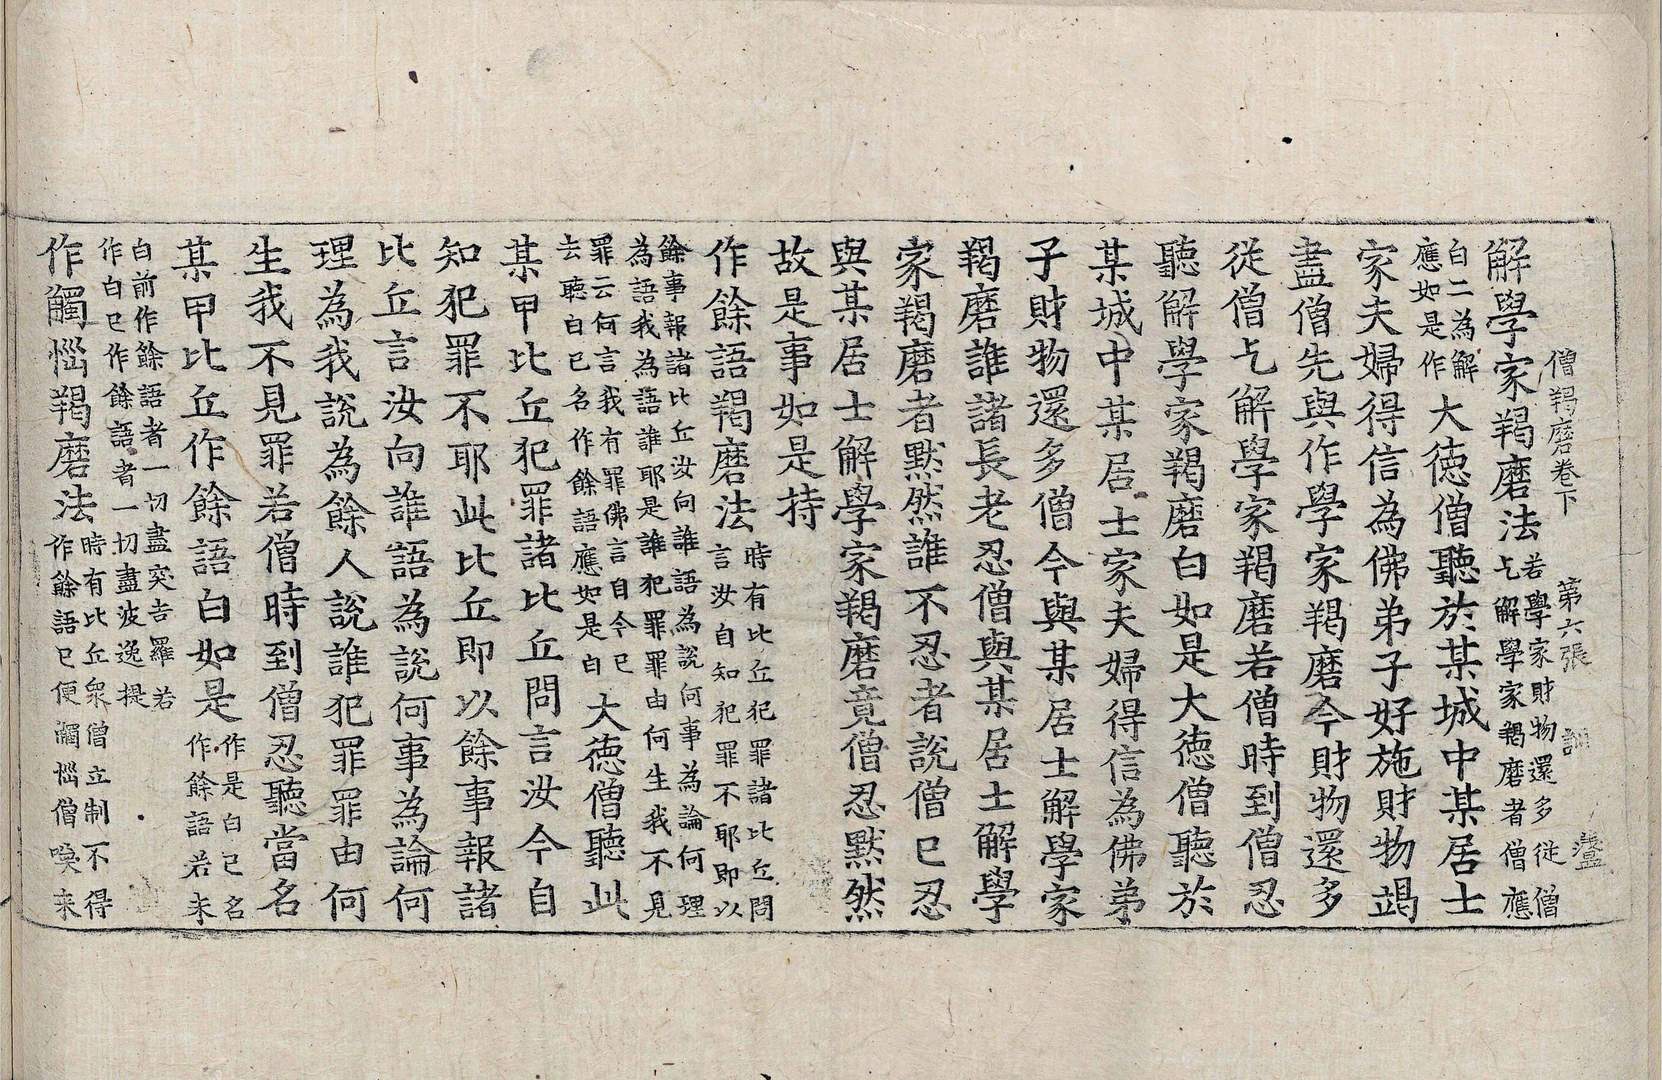 僧羯磨卷下　第六張　訓　盞
解學家羯磨法若學家財物還多從僧乞解學家羯磨者僧應
白二為解應如是作大德僧聽於某城中某居士
家夫婦得信為佛弟子好施財物竭
盡僧先與作學家羯磨今財物還多
從僧乞解學家羯磨若僧時到僧忍
聽解學家羯磨白如是大德僧聽於
某城中某居士家夫婦得信為佛弟
子財物還多僧今與某居士解學家
羯磨誰諸長老忍僧與某居士解學
家羯磨者默然誰不忍者說僧已忍
與某居士解學家羯磨竟僧忍默然
故是事如是持
作餘語羯磨法時有比丘犯罪諸比丘問言汝自知犯罪不耶即以
餘事報諸比丘汝向誰語為說何事為論何理為語我為語誰耶是誰犯罪罪由何生我不見
罪云何言我有罪佛言自今已去聽白已名作餘語應如是白大德僧聽此
某甲比丘犯罪諸比丘問言汝今自
知犯罪不耶此比丘即以餘事報諸
比丘言汝向誰語為說何事為論何
理為我說為餘人說誰犯罪罪由何
生我不見罪若僧時到僧忍聽當名
某甲比丘作餘語白如是作是白已名作餘語若未
白前作餘語者一切盡突吉羅若作白已作餘語者一切盡波逸提
作觸惱羯磨法時有比丘眾僧立制不得作餘語已便觸惱僧喚来